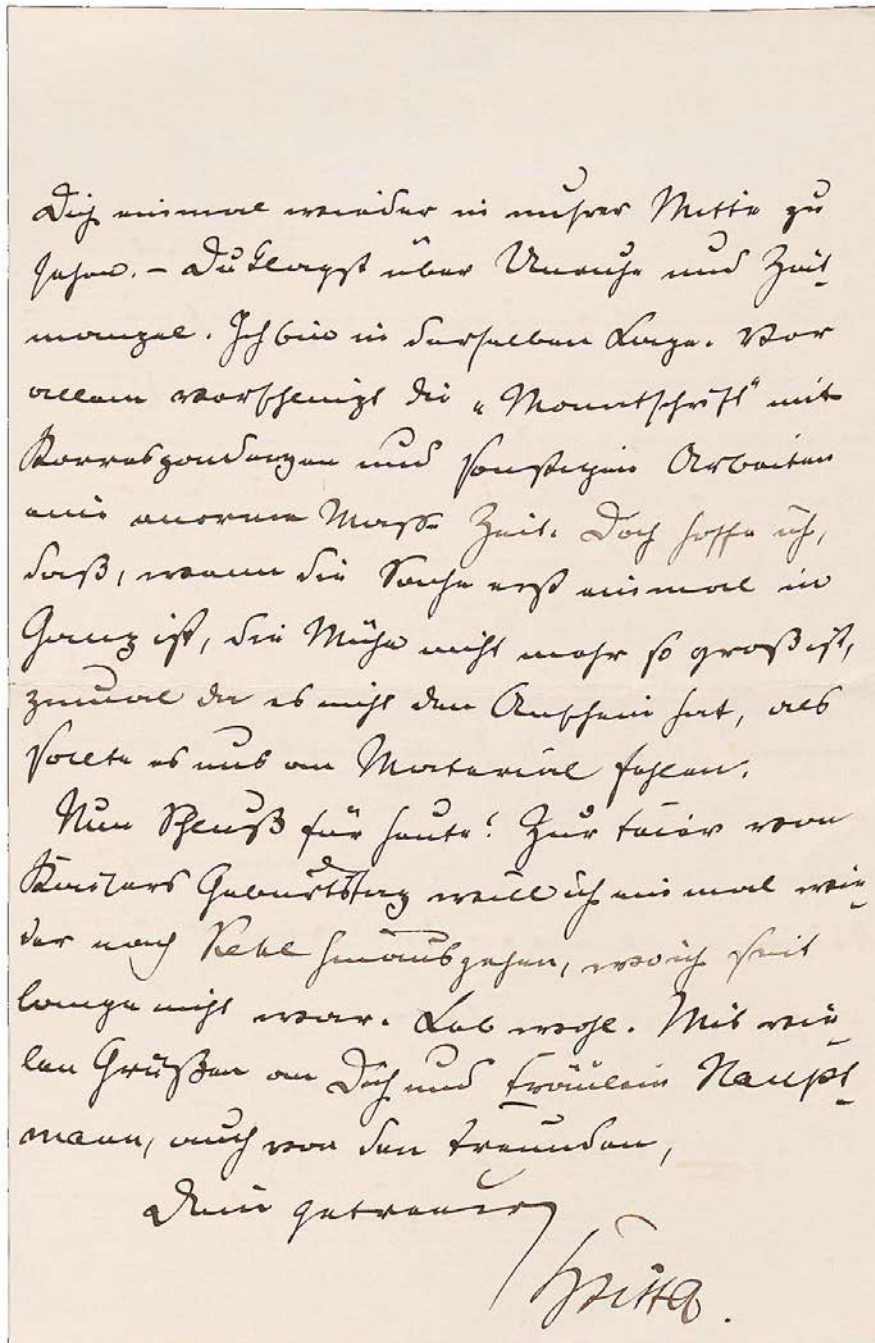 Dich einmal wieder in unsrer Mitte zu
sehen. – Du klagst über Unruhe und Zeit-
mangel. Ich bin in derselben Lage. Vor
allem verschlingt die „Monatschrift" mit
Korrespondenzen und sonstigen Arbeiten
eine enorme Masse Zeit. Doch hoffe ich,
daß, wenn die Sache erst einmal in
Gang ist, die Mühe nicht mehr so groß ist,
zumal da es nicht den Anschein hat, als
sollte es uns an Material fehlen.
Nun Schluß für heute! Zur Feier von
Kaisers Geburtstag will ich einmal wie-
der nach Kehl hinausgehen, wo ich seit
lange nicht war. Leb wohl. Mit vie-
len Grüßen an Dich und Fräulein Haupt-
mann, auch von den Freunden,
Dein getreuer
Spitta.